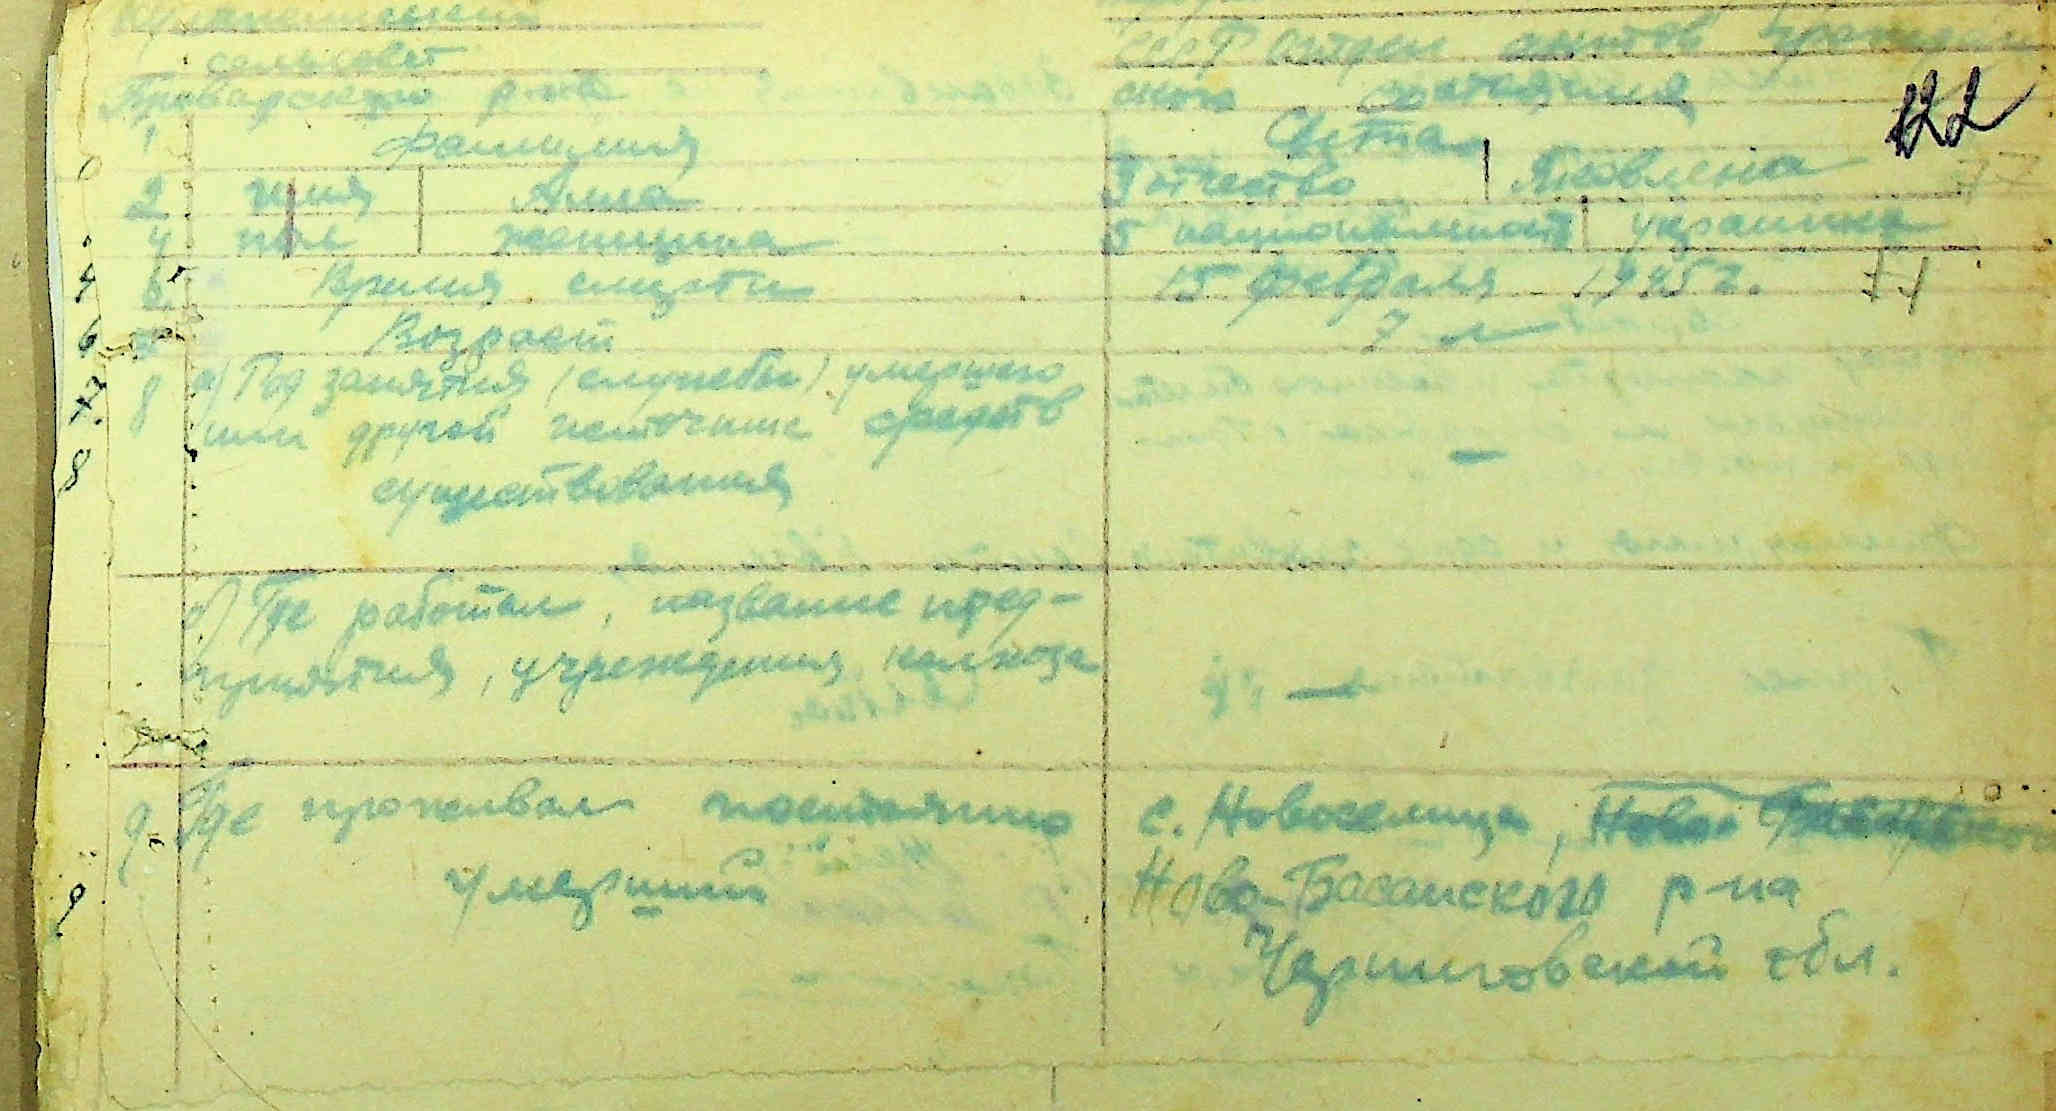 сельсовет
Броварского р-на
СССР отдел актов граждан
ского состояния
122
1 фамилия
2 имя Алла
отчество Яковлевна
4 пол женщина
5 национальность украинка
6 Время смерти
15 февраля 1945 г.
Возраст
7 л
8 а) Род занятия (службы) умершего
или другой источник средств
существования
—
б) Где работал, название пред-
приятия, учреждения, колхоза
—
9 Где проживал постоянно
умерший
с. Новоселица,
Ново-Басанского р-на
Черниговской обл.
4
6
7
8
9